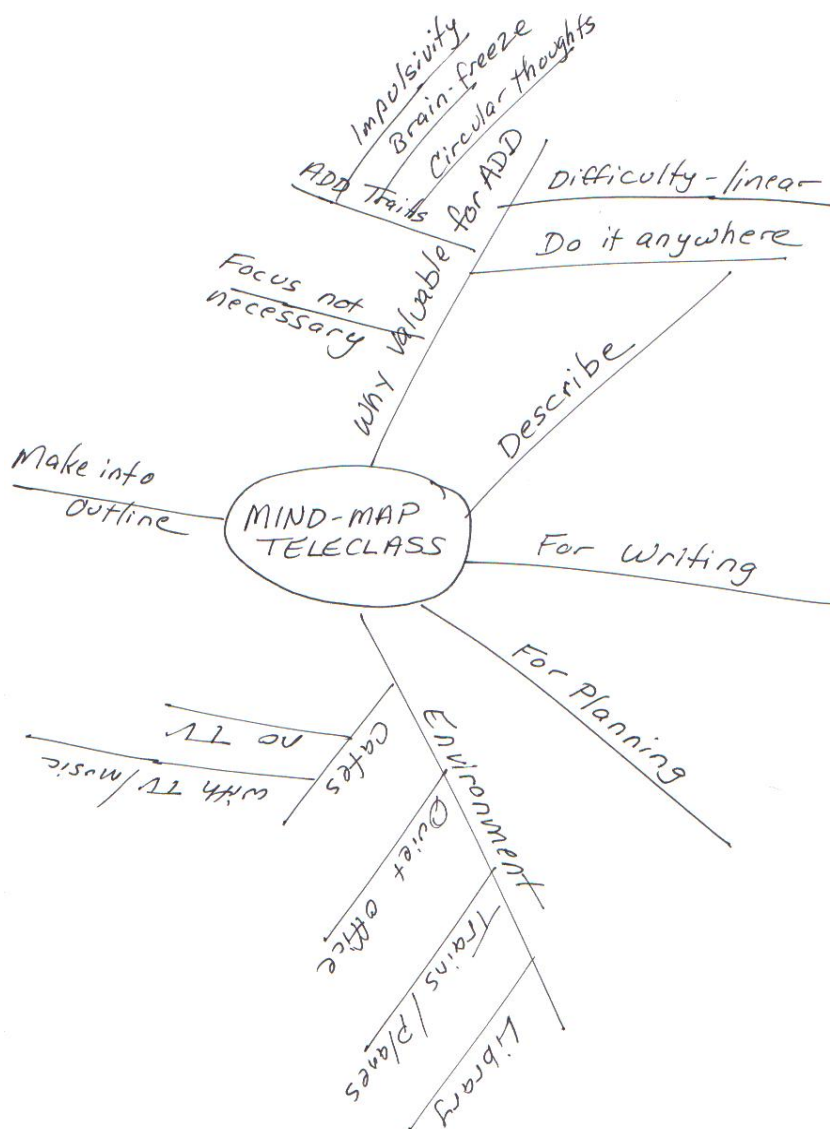 MIND-MAP
TELECLASS
Why valuable for ADD
ADD Traits
Impulsivity
Brain-freeze
Circular thoughts
Focus not
necessary
Difficulty-linear
Do it anywhere
Describe
For Writing
For Planning
Environment
Cafes
no TV
with TV/music
Quiet office
Trains/planes
Library
Make into
outline